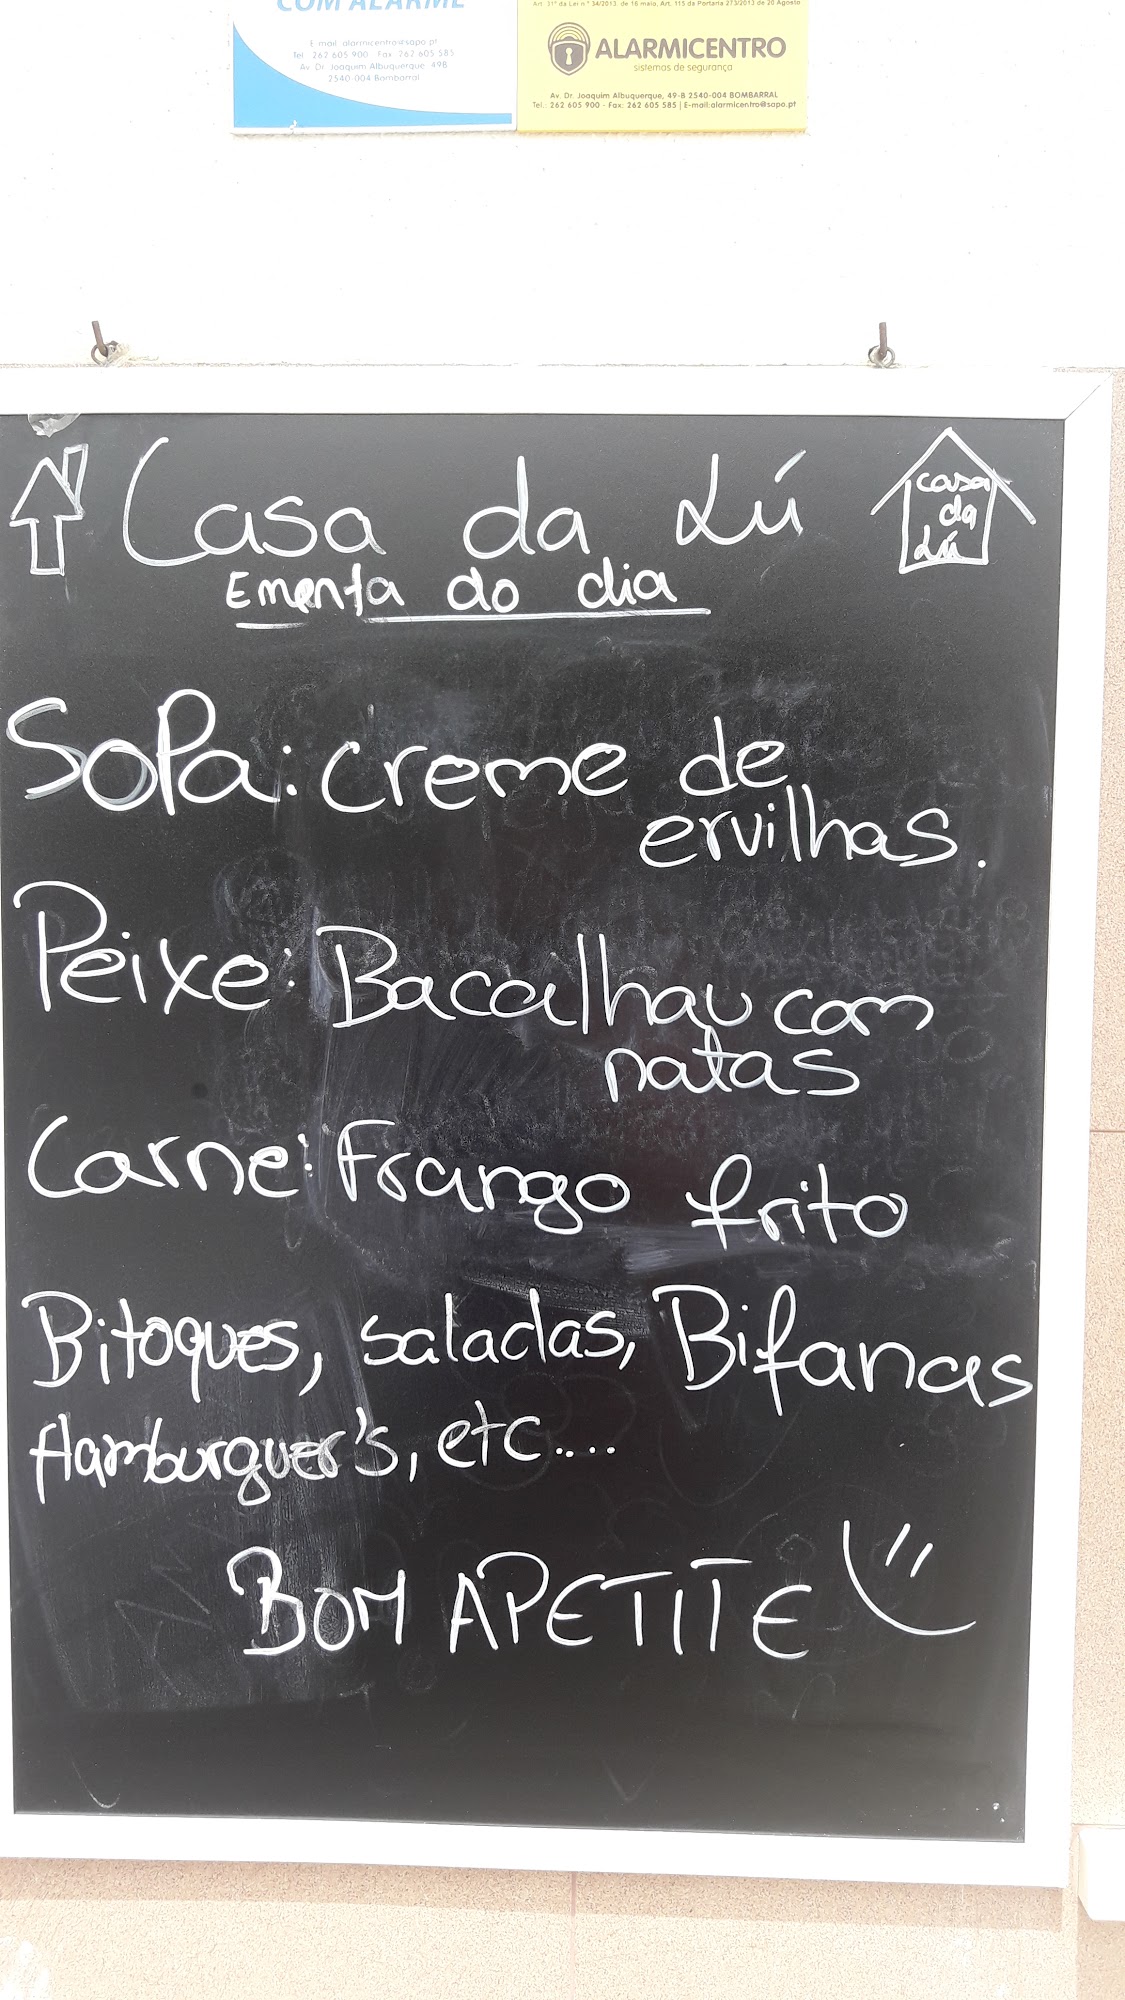 COM ALARME
E-mail: alarmicentro@sapo.pt
Tel: 262 605 900 Fax: 262 605 585
Av. Dr. Joaquim Albuquerque 49B
2540-004 Bombarral
Art. 31º da Lei nº 34/2013, de 16 maio, Art. 115 da Portaria 273/2013 de 20 Agosto
ALARMICENTRO
sistemas de segurança
Av. Dr. Joaquim Albuquerque, 49-B 2540-004 BOMBARRAL
Tel.: 262 605 900 - Fax: 262 605 585 | E-mail:alarmicentro@sapo.pt
Casa da Lú
casa
da
Lú
Ementa do dia
Sopa: creme de
ervilhas.
Peixe: Bacalhau com
natas
Carne: Frango frito
Bitoques, saladas, Bifanas
Hamburguer's, etc....
BOM APETITE